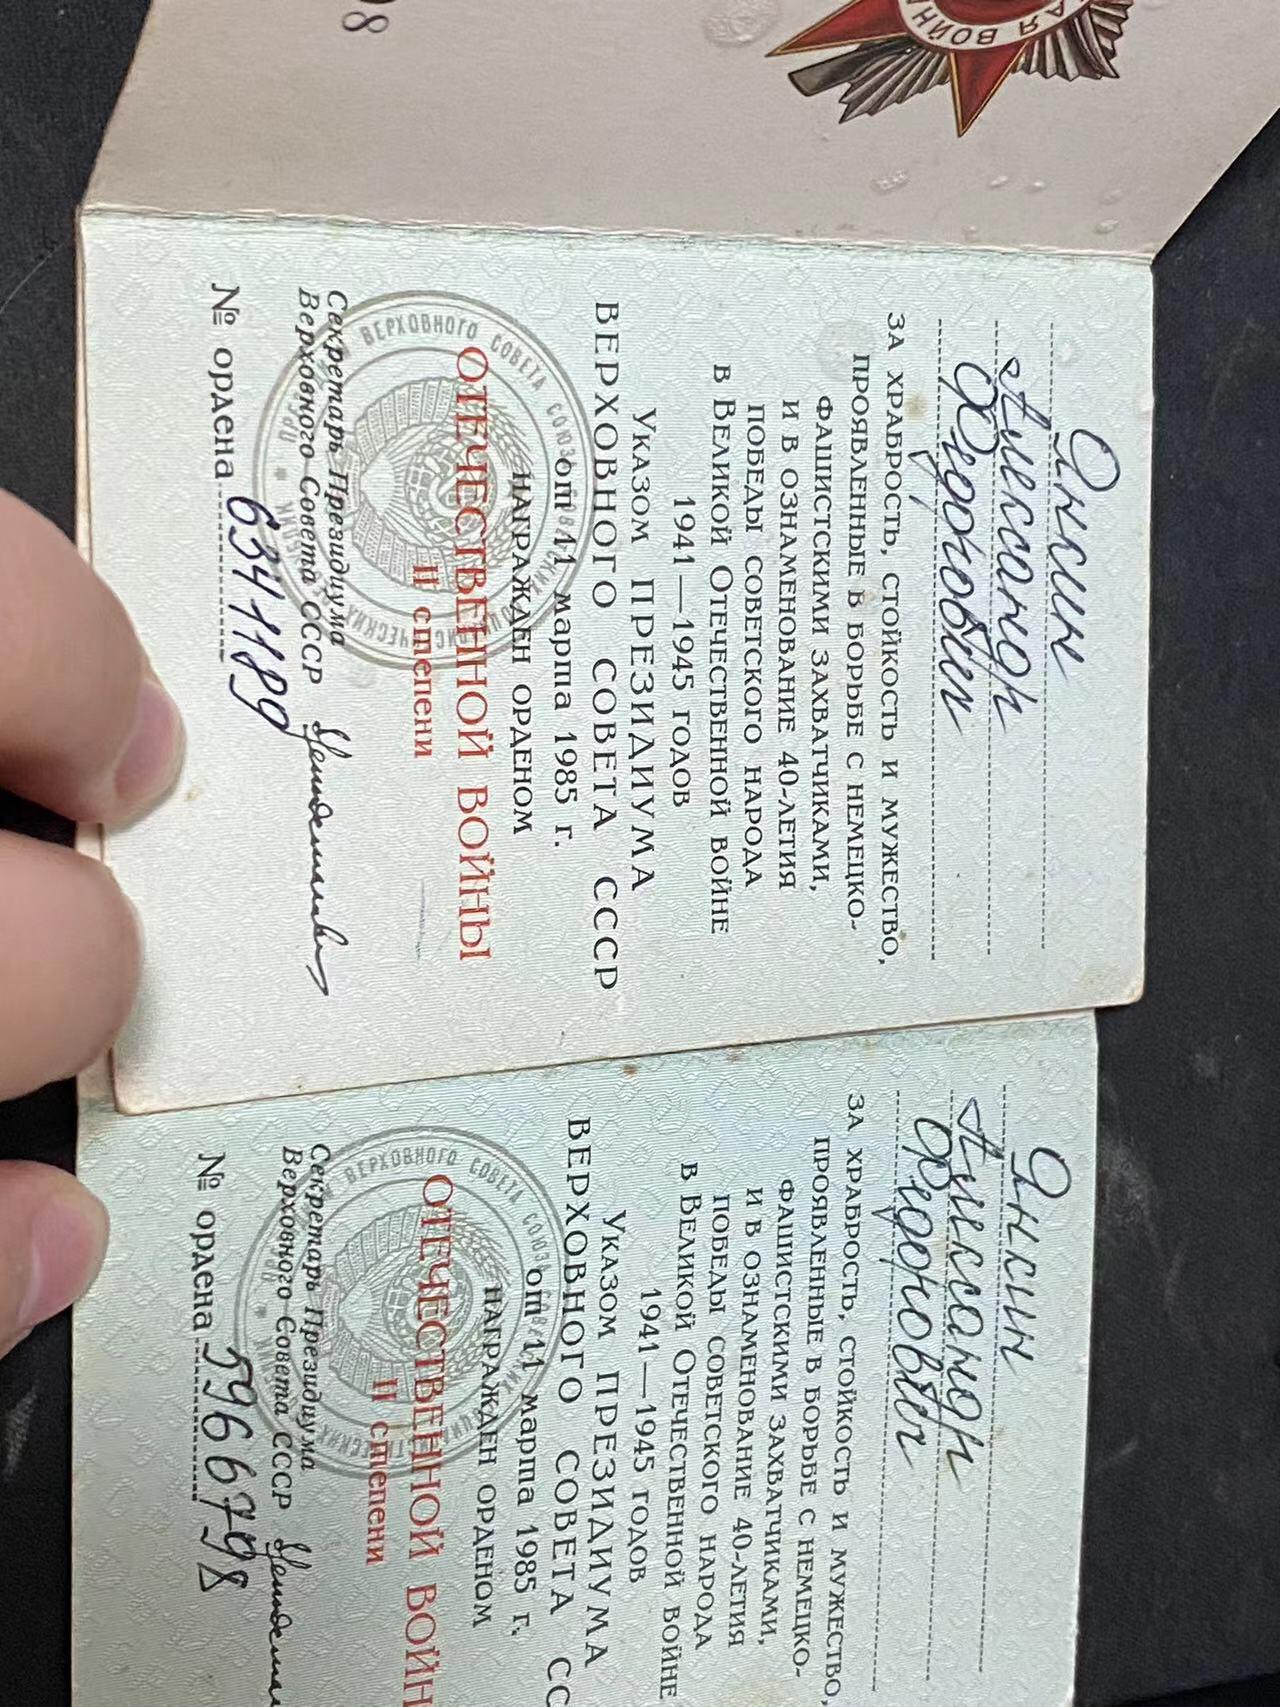 98
АЯ ВОЙНА
Янсин
Александр
Федорович
ЗА ХРАБРОСТЬ, СТОЙКОСТЬ И МУЖЕСТВО,
ПРОЯВЛЕННЫЕ В БОРЬБЕ С НЕМЕЦКО-
ФАШИСТСКИМИ ЗАХВАТЧИКАМИ,
И В ОЗНАМЕНОВАНИЕ 40-ЛЕТИЯ
ПОБЕДЫ СОВЕТСКОГО НАРОДА
В ВЕЛИКОЙ ОТЕЧЕСТВЕННОЙ ВОЙНЕ
1941—1945 ГОДОВ
УКАЗОМ ПРЕЗИДИУМА
ВЕРХОВНОГО СОВЕТА СССР
от 11 марта 1985 г.
НАГРАЖДЕН ОРДЕНОМ
ОТЕЧЕСТВЕННОЙ ВОЙНЫ
II степени
ВЕРХОВНОГО СОВЕТА СОЮЗА
Секретарь Президиума
Верховного Совета СССР
№ ордена 6341189
Янсин
Александр
Федорович
ЗА ХРАБРОСТЬ, СТОЙКОСТЬ И МУЖЕСТВО,
ПРОЯВЛЕННЫЕ В БОРЬБЕ С НЕМЕЦКО-
ФАШИСТСКИМИ ЗАХВАТЧИКАМИ,
И В ОЗНАМЕНОВАНИЕ 40-ЛЕТИЯ
ПОБЕДЫ СОВЕТСКОГО НАРОДА
В ВЕЛИКОЙ ОТЕЧЕСТВЕННОЙ ВОЙНЕ
1941—1945 ГОДОВ
УКАЗОМ ПРЕЗИДИУМА
ВЕРХОВНОГО СОВЕТА СС
от 11 марта 1985 г.
НАГРАЖДЕН ОРДЕНОМ
ОТЕЧЕСТВЕННОЙ ВОЙН
II степени
ВЕРХОВНОГО СОВЕТА СОЮЗА
Секретарь Президиума
Верховного Совета СССР
№ ордена 5966798